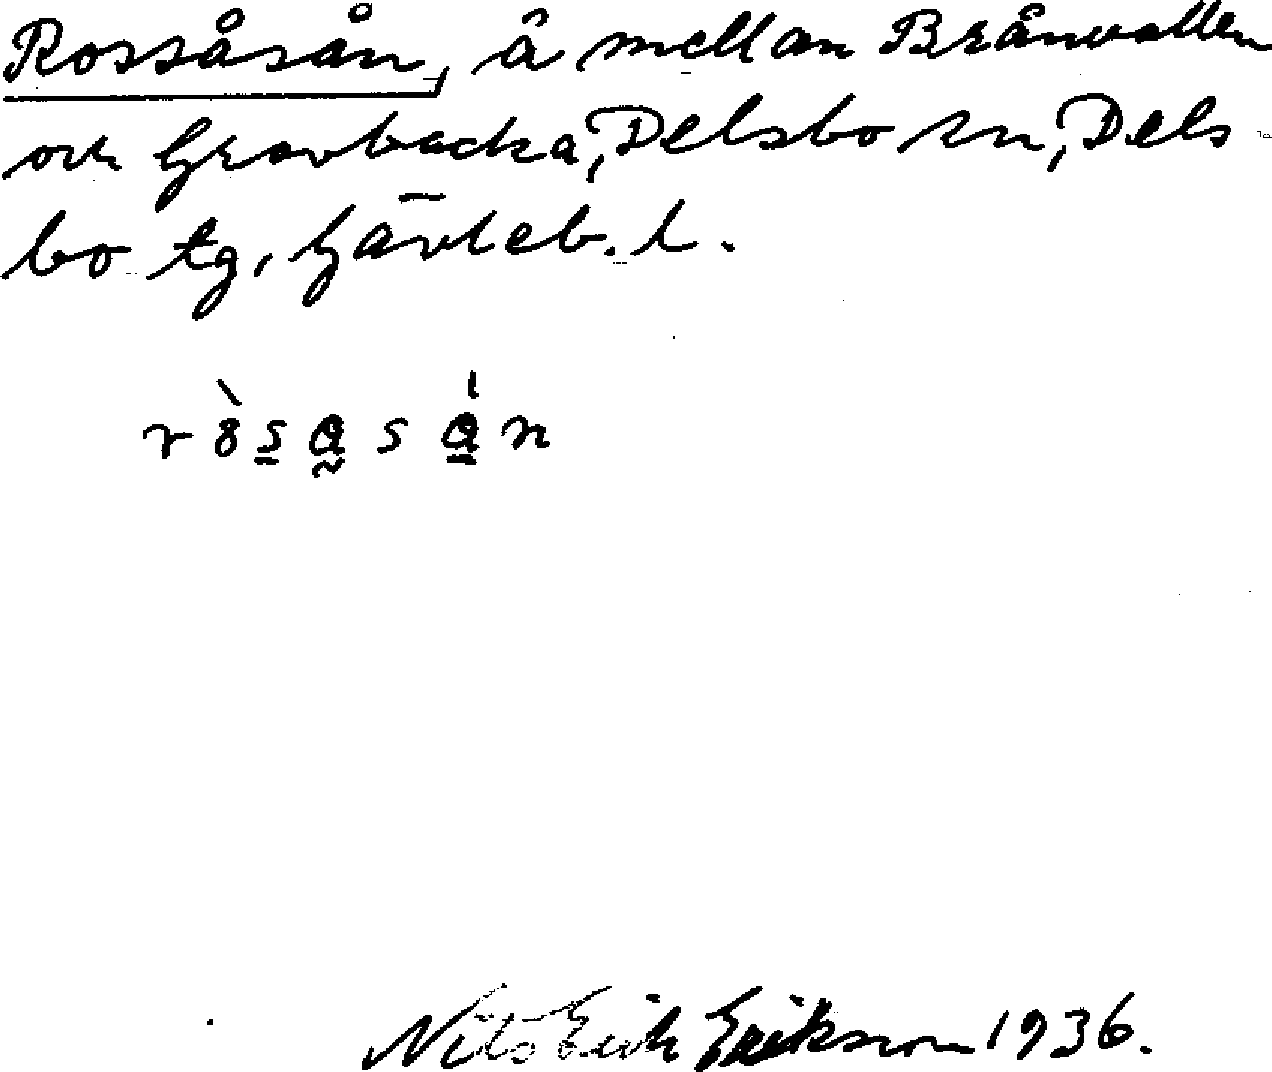 Rossåsån, å mellan Brånvallen
och Gravbacka, Delsbo sn, Dels
bo tg, Gävleb. l.
Nils Erik Erikson 1936.